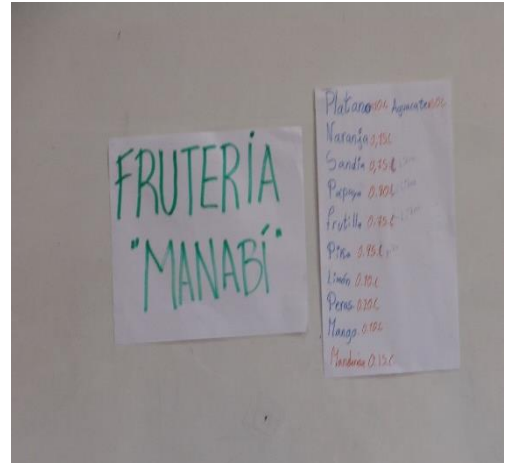 FRUTERÍA
"MANABÍ"
Platano Aguacate
Naranja 0,25¢
Sandía 0,75¢
Papaya 0.80¢
frutilla 0.75¢
Piña 0.95¢
Limón 0.10¢
Peras 0.20¢
Mango 0.10¢
Mandarina 0.15¢